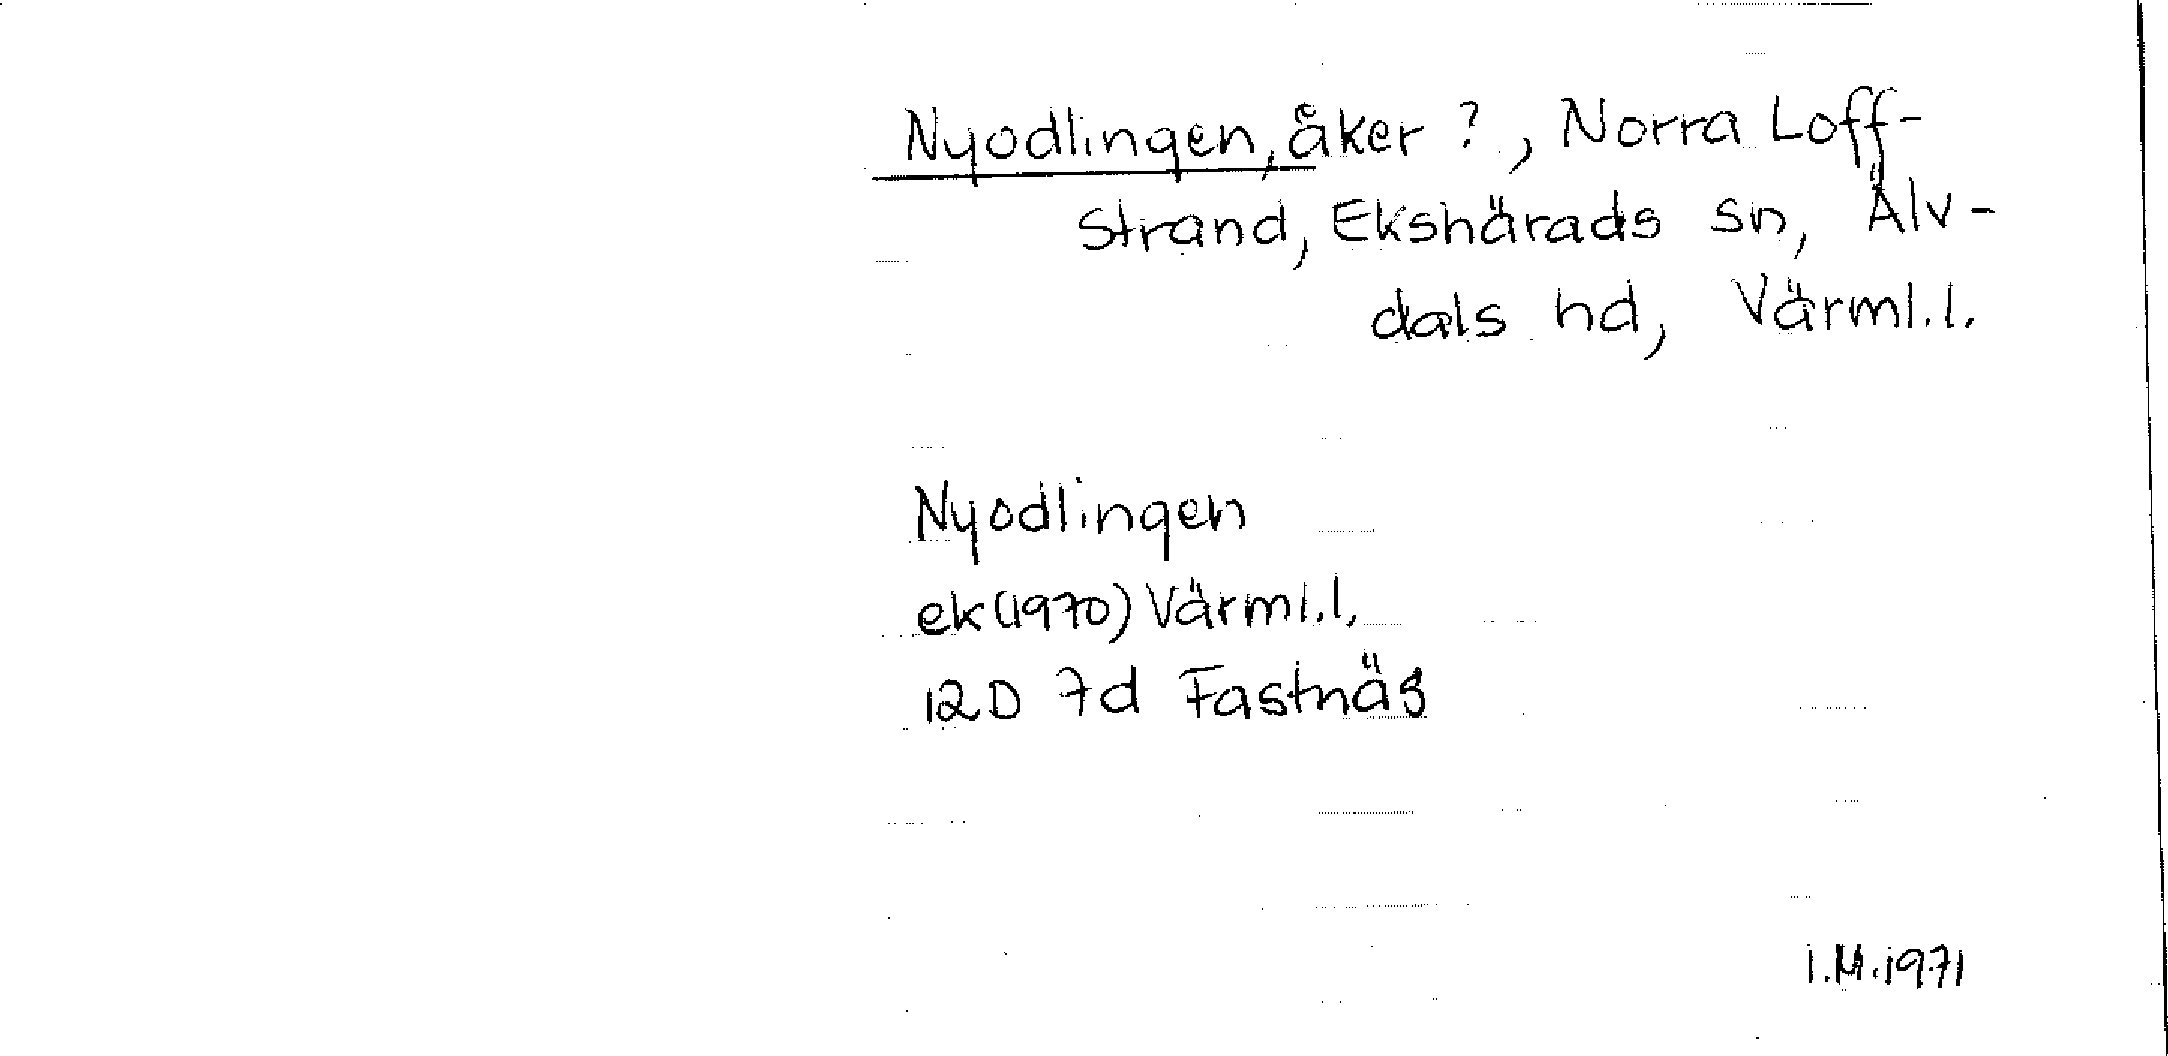 Nyodlingen, åker ?, Norra Loff-
strand, Ekshärads sn, Älv-
dals hd, Värml.l.
Nyodlingen
ek(1970) Värml.l.
12D 7d Fastnäs
I.M.1971